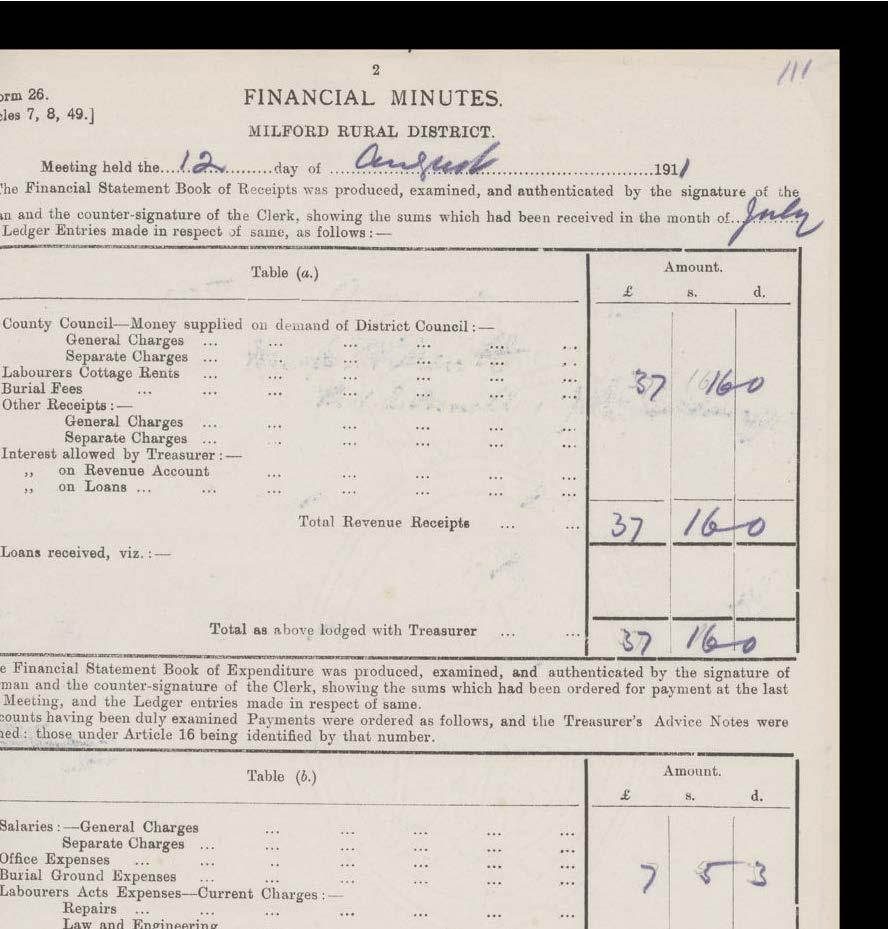 2
111
orm 26.
FINANCIAL MINUTES.
cles 7, 8, 49.]
MILFORD RURAL DISTRICT.
Meeting held the....12.........day of ....August....................................1911
The Financial Statement Book of Receipts was produced, examined, and authenticated by the signature of the
an and the counter-signature of the Clerk, showing the sums which had been received in the month of..July
Ledger Entries made in respect of same, as follows:—
Table (a.) Amount.
£ s. d.
County Council—Money supplied on demand of District Council:—
General Charges ... ... ... ... ... ...
Separate Charges ... ... ... ... ... ...
Labourers Cottage Rents ... ... ... ... ... ... 37 16 0
Burial Fees ... ... ... ... ... ... ...
Other Receipts:—
General Charges ... ... ... ... ... ...
Separate Charges ... ... ... ... ... ...
Interest allowed by Treasurer:—
,, on Revenue Account ... ... ... ... ...
,, on Loans ... ... ... ... ... ... ...
Total Revenue Receipts ... ... 37 16 0
Loans received, viz.:—
Total as above lodged with Treasurer ... ... 37 16 0
e Financial Statement Book of Expenditure was produced, examined, and authenticated by the signature of
man and the counter-signature of the Clerk, showing the sums which had been ordered for payment at the last
Meeting, and the Ledger entries made in respect of same.
counts having been duly examined Payments were ordered as follows, and the Treasurer's Advice Notes were
ned: those under Article 16 being identified by that number.
Table (b.) Amount.
£ s. d.
Salaries:—General Charges ... ... ... ... ...
Separate Charges ... ... ... ... ... ...
Office Expenses ... ... ... ... ... ... ... 7 5 3
Burial Ground Expenses ... ... ... ... ... ...
Labourers Acts Expenses—Current Charges:—
Repairs ... ... ... ... ... ... ...
Law and Engineering